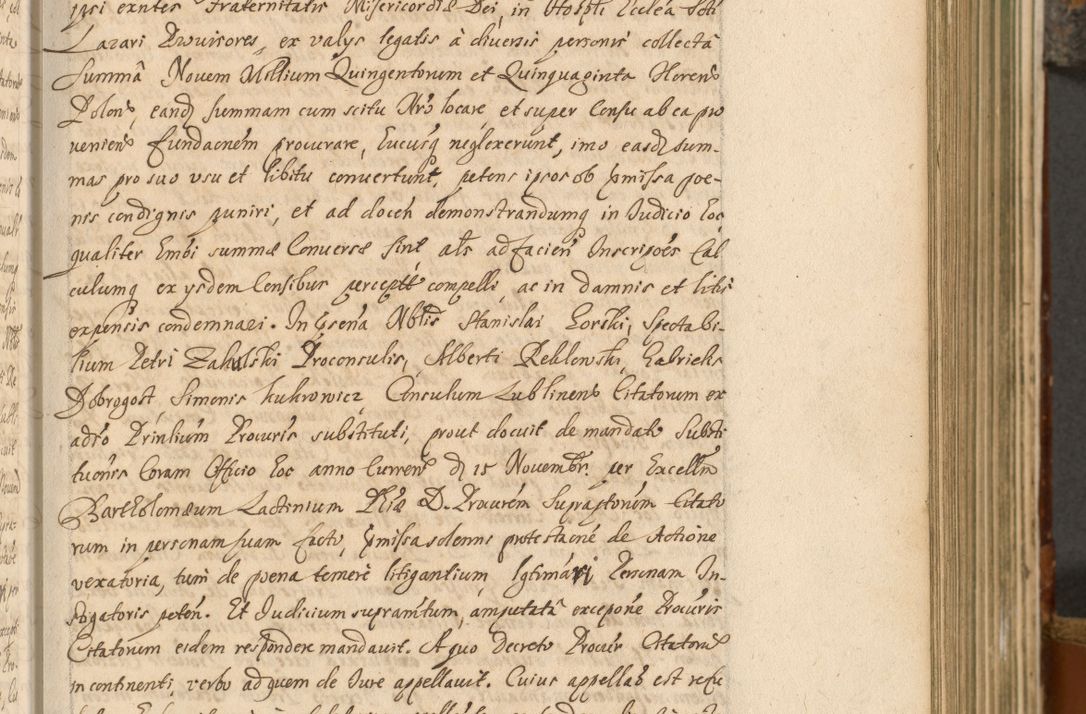 ipsi exntes Fraternitatis Misericordiæ Dei, in Hospli Ecclea Scti
Lazari Prouisores, ex valys legatis à diuersis personis collectâ
Summâ Novem Millium Quingentorum et Quinquaginta Floren
Polon, eand summam cum scitu Nro locare, et super Censu ab ea pro
uenien Fundacnem procurare, hucusq neglexerunt, imo easd sum-
mas pro suo usu et libitu conuertunt, petens ipsos ob pmissa poe-
nis condignis puniri, et ad docen demonstrandumq in Iudicio hoc
qualiter Embi summæ Conversæ sint als ad facien Inscripoes Cal
culumq ex ysdem Censibus percept compelli, ac in damnis et litis
expensis condemnari. In psena Nblis Stanislai Gorski, Spectabi-
lium Petri Zakulski Proconsulis, Alberti Reklowski, Gabrielis
Dobrogost Simonis Kukrowicz Consulum Lublinens Citatorum ex
adso Prinlium Procuris substituti, prout docuit de mandato Substi
tuonis Coram Officio hoc anno Curren d 15 Novembr. per Excelln
Bartholomæum Lactinium Phiæ D. Procurem Suprastorum Citato
rum in personam suam facto, pmissa solenni protestacne de Actione
vexatoria, tum de poena temere litigantium, Lgtimari Personam In-
stigatoris peten. Et Iudicium supramtum, amputatâ excepone Procuris
Citatorum eidem respondere mandauit. A quo Decreto Procur Citatorum
in continenti, verbo ad quem de Iure appellauit. Cuius appellao est refu